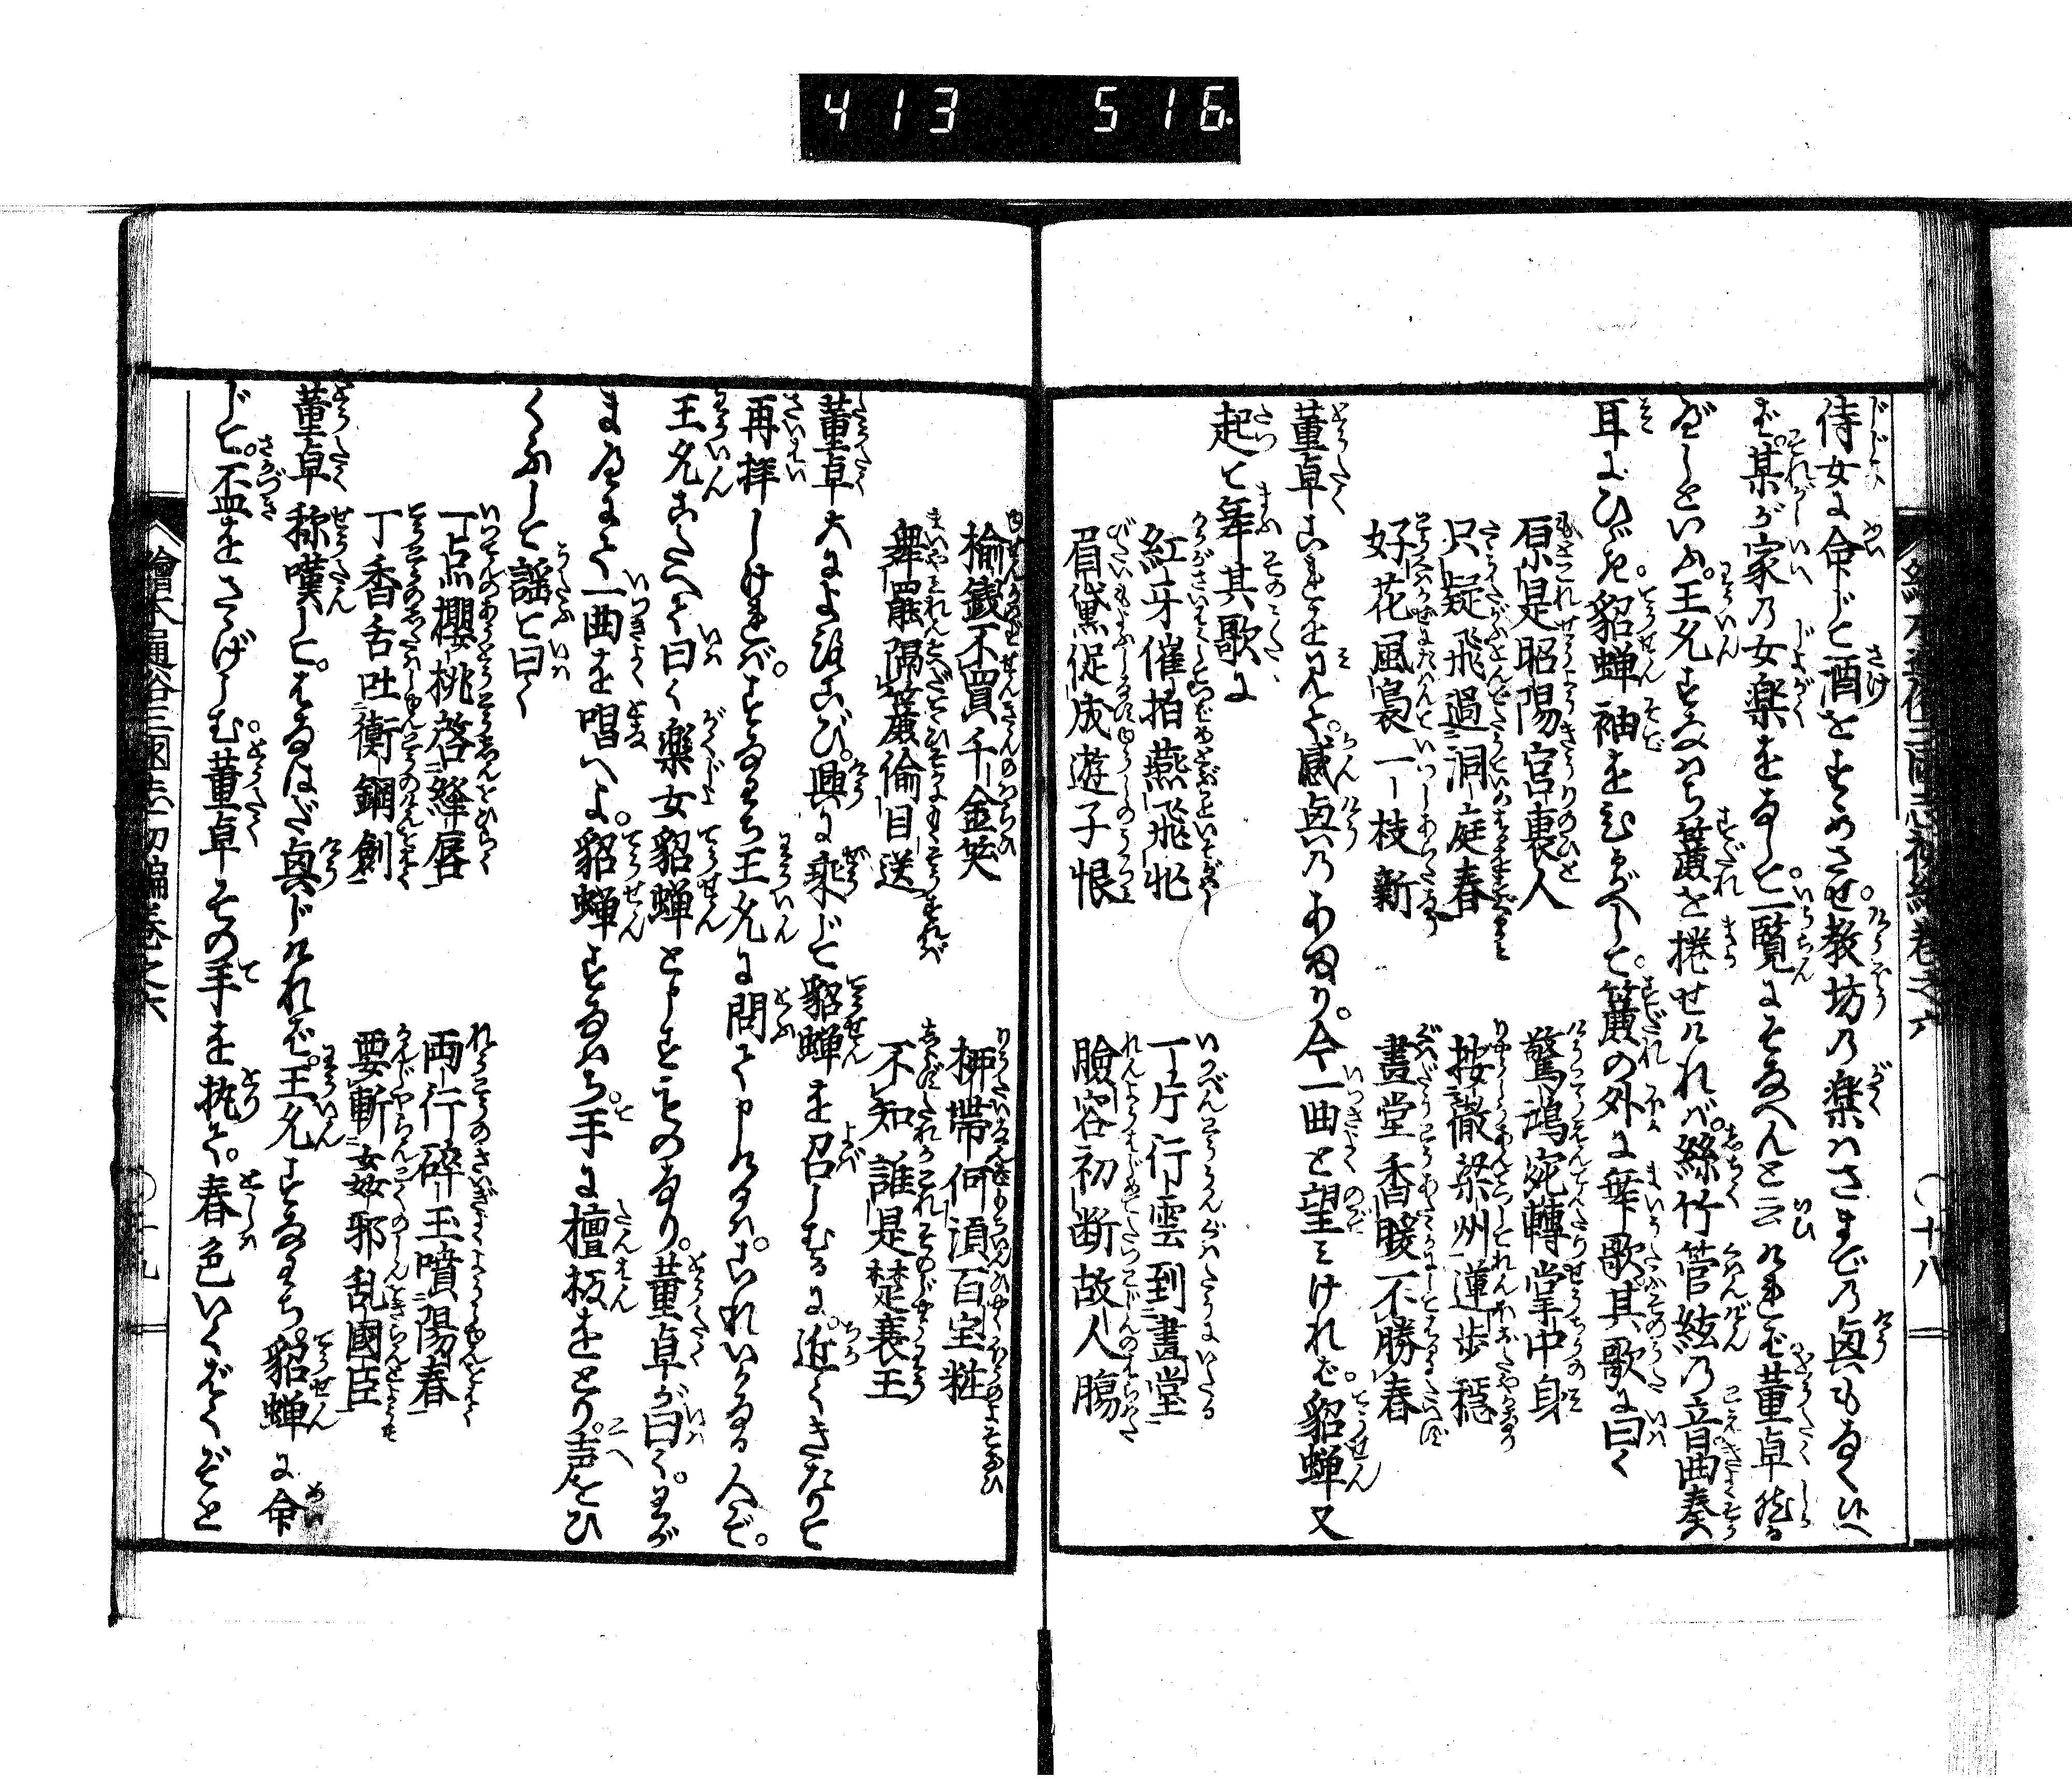 413 516
繪本通俗三國志初編卷之六 〇十八
侍女に命じて酒をすゝめさせ。教坊の楽はさまでの興もなく候へ
ば。某が家の女楽をなして。一覧にそなへんと云ければ董卓然る
べしといふ。王允すなはち簾を捲せければ。絲竹管絃の音曲奏
耳にひゞき。貂蝉袖をひるがへして。簾の外に舞歌其歌に曰く
原是昭陽宮裏人　驚鴻宛轉掌中身
只疑飛過洞庭春　按徹梁州蓮歩穏
好花風裊一枝新　畫堂香暖不勝春
董卓これを見て。感興のあまり。今一曲と望みければ。貂蝉又
起て舞其歌に
紅牙催拍燕飛忙　一片行雲到畫堂
眉黛促成遊子恨　臉容初断故人腸
楡錢不買千金笑　柳帶何須百宝粧
舞罷隔簾偸目送　不知誰是楚襄王
董卓大によろこび。興に乗じて貂蝉を召しむるに。近くきたりて
再拝しければ。すなはち王允に問て申けるは。これいかなる人ぞ。
王允こたへて曰く楽女貂蝉と申すものなり。董卓が曰く。わが
まへにて一曲を唱へよ。貂蝉すなはち。手に檀板をとり。声をひ
くふして謡て曰く
一点櫻桃啓絳唇　両行碎玉噴陽春
丁香舌吐衡鋼劍　要斬姦邪乱國臣
董卓称嘆して。はなはだ興じければ。王允すなはち。貂蝉に命
じて。盃をさゝげしむ。董卓その手を執て。春色いくばくぞと
繪本通俗三國志初編卷之六 〇十九